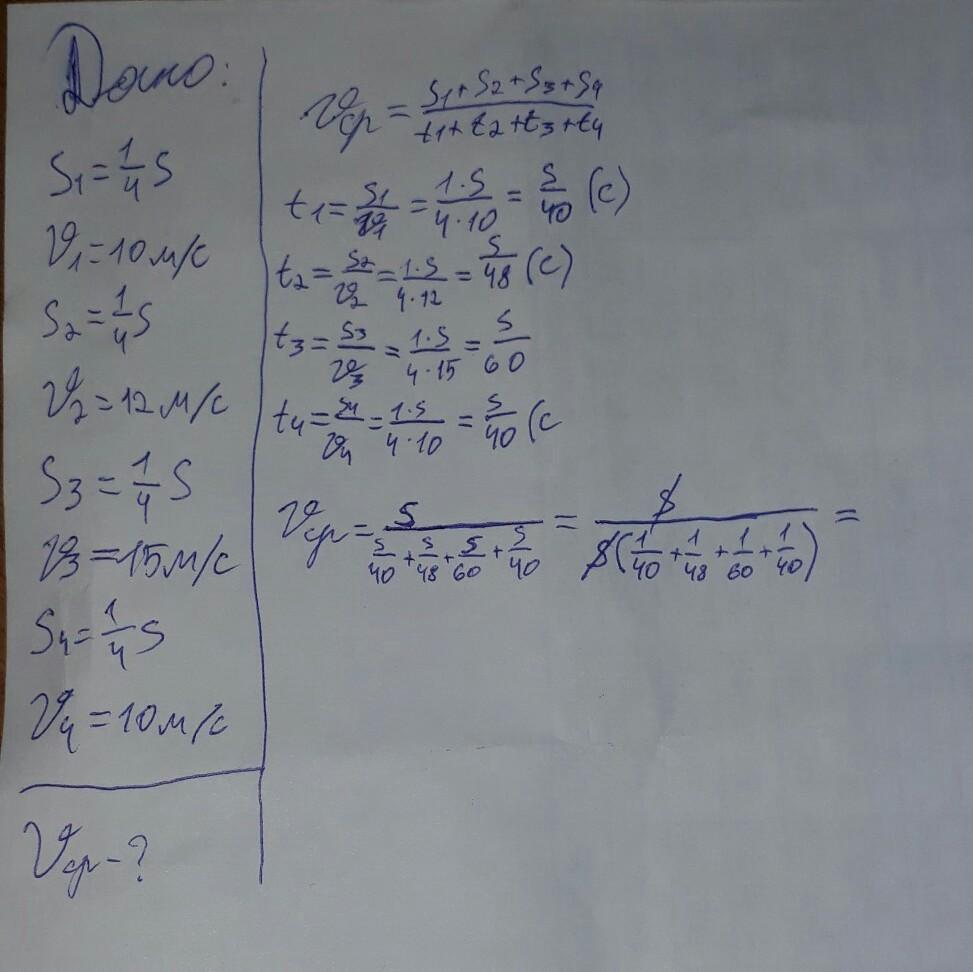 Дано:
S₁ = 1/4 S
𝒱₁ = 10 м/с
S₂ = 1/4 S
𝒱₂ = 12 м/с
S₃ = 1/4 S
𝒱₃ = 15 м/с
S₄ = 1/4 S
𝒱₄ = 10 м/с
𝒱ср - ?
𝒱ср = (S₁ + S₂ + S₃ + S₄)/(t₁ + t₂ + t₃ + t₄)
t₁ = S₁/𝒱₁ = (1·S)/(4·10) = S/40 (с)
t₂ = S₂/𝒱₂ = (1·S)/(4·12) = S/48 (с)
t₃ = S₃/𝒱₃ = (1·S)/(4·15) = S/60
t₄ = S₄/𝒱₄ = (1·S)/(4·10) = S/40 (с
𝒱ср = S/(S/40 + S/48 + S/60 + S/40) = S/(S(1/40 + 1/48 + 1/60 + 1/40)) =